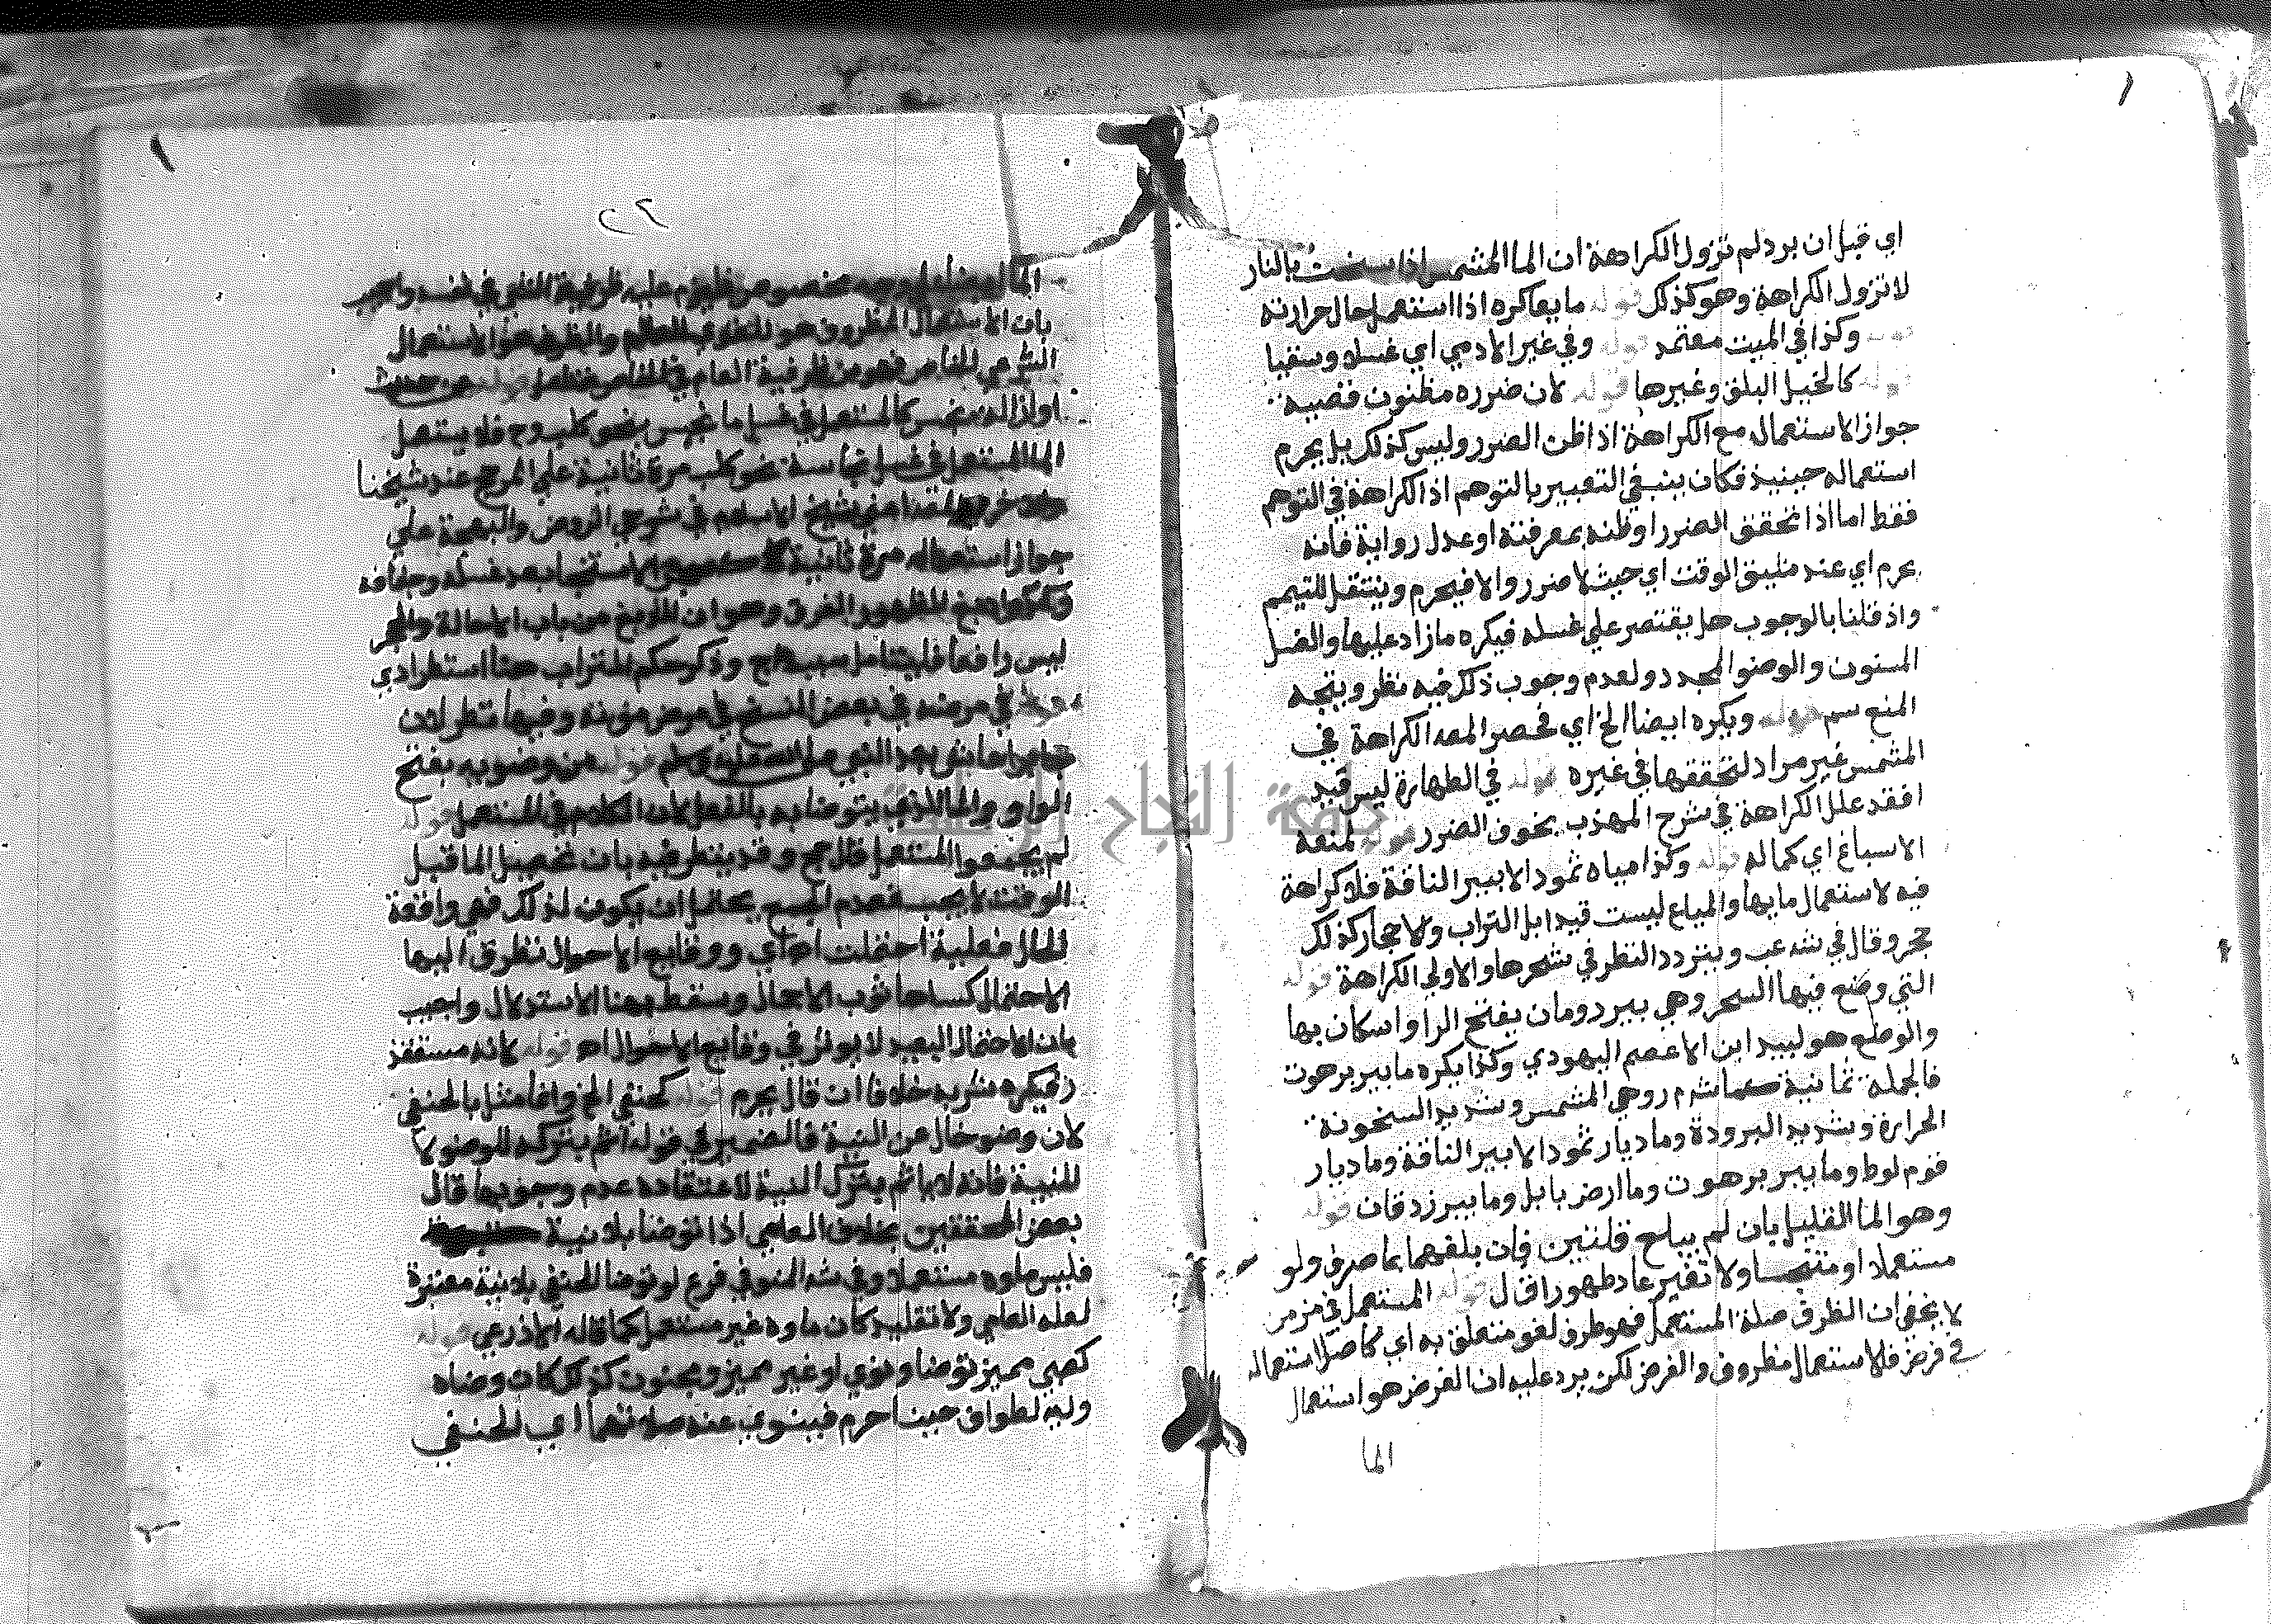 اي قبل ان برد لم تزول الكراهة ان الما المشمس اذا سخنت بالنار
لا تزول الكراهة وهو كذلك قوله ما يعاكره اذا استعمل حال حرارته
قوله وكذا في الميت معتمد قوله وفي غير الادمي اي غسله وسقيا
قوله كالخيل البلق وغيرها قوله لان ضرره مظنون قضيه
جواز الاستعماله مع الكراهة اذا ظن الضرر وليس كذلك بل يحرم
استعماله حينيذ فكان ينبغي التعبير بالتوهم اذ الكراهة في التوهم
فقط اما اذا تحقق الضرر او ظنه بمعرفته او عدل رواية فانه
يحرم اي عند ضيق الوقت اي حيث لا ضرر والا فيحرم وينتقل للتيمم
واذ قلنا بالوجوب هل يقتصر علي غسله فيكره ما زاد عليها والغسل
المسنون والوضو المجدد ولعدم وجوب ذلك فيه نظر ويتجه
المنع سم قوله ويكره ايضا الخ اي فحصر المصـ الكراهة في
المشمس غير مراد لتحققها في غيره قوله في الطهارة ليس قيد
افقد علل الكراهة في شرح المهذب بخوف الضرر قوله لمنعه
الاسباغ اي كماله قوله وكذا مياه ثمود الا بيير الناقة فلا كراهة
فيه لاستعمال مايها والمياع ليست قيدا بل التراب والاحجار كذلك
حجر وقال في شـ عب ويتردد النظر في شجرها والاولي الكراهة قوله
التي وضع فيها السحر وهي بيير دومان بفتح الرا واسكان بها
والوضع هو لبيد ابن الاعصم اليهودي وكذا يكره ما بيير برهوت
فالجملة ثمانية كما شـ م ر وهي المشمس وشديد السخونة
الحرارة وشديد البرودة وما ديار ثمود الا بيير الناقة وما ديار
قوم لوط وما بيير برهوت وما ارض بابل وما بيير زدقان قوله
وهو الما القليل بان لم يبلح قلتين فان بلغهما بما صرف ولو
مستعملا او متنجسا ولا تغير عاد طهورا اقال قوله المستعمل في فرض
لا يخفي ان الظرف صلة المستعمل فهو ظرف لغو متعلق به اي كا صل استعماله
في فرض فالاستعمال مظروف والفرض لكن يرد عليه ان الفرض هو استعمال
الما
الما
بان الاستعمال المظروف هو اللغوي العام والظرف هو الاستعمال
الشرعي الخاص فهو من ظرفية العام في الخاص فتامل قوله عن حدث
او ازالة نجس كالمستعمل في غسل ما نجس بنحو كلب وح فلا يستعمل
الما المستعمل في غسل نجاسة نحو كلب مرة ثانية علي المرجح عند شيخنا
شيخ الاسلام في شرحي الروض والبهجة علي
جواز استعماله مرة ثانية كحجر الاستنجا بعد غسله وجفافه
الفرق وهو ان الدبغ من باب الاحالة والحجر
ليس رافعا فليتامل وذكر حكم التراب هنا استطرادي
قوله في مرضه في بعض النسخ في مرض موته وفيها نظر لان
جابرا عاش بعد النبي صلى الله عليه وسلم قوله من وضويه بفتح
الواو والما الذي يتوضا به بالفعل لان الكلام في المستعمل قوله
لم يجمعوا المستعمل وقد ينظر فيه بان تحصيل الما قبل
الوقت لا يجب فعدم الجمع يحتمل ان يكون لذلك فهي واقعة
الحال فعلية احتملت اه اي ووقايع الاحوال تطرق اليها
الاحتمال كساها ثوب الاجمال وسقط بهنا الاستدلال واجيب
بان الاحتمال البعيد لا يوثر في وقايع الاحوال اه قوله لانه مستقذر
فيكره شربه خلافا ان قال يحرم قوله كحنفي الخ وانما مثل بالحنفي
لان وضو خال عن النية فالضمير في قوله اثم بتركه للوضو لا
للنية فانه لا ياثم بترك النية لاعتقاده عدم وجوبها قال
بعض المحققين بخلاف العامي اذا توضا بلا نية
فليس ماوه مستعملا وفي شـ المنوفي فرع لو توضا الحنفي بلا نية معتبرة
لعله العامي ولا تقليد كان ماوه غير مستعمل كما قاله الاذرعي قوله
كصبي مميز توضا ونوي او غير مميز ومجنون كذلك كان وضاه
وليه لطواف حيث احرم فينوي عنه صلا تهما اي الحنفي